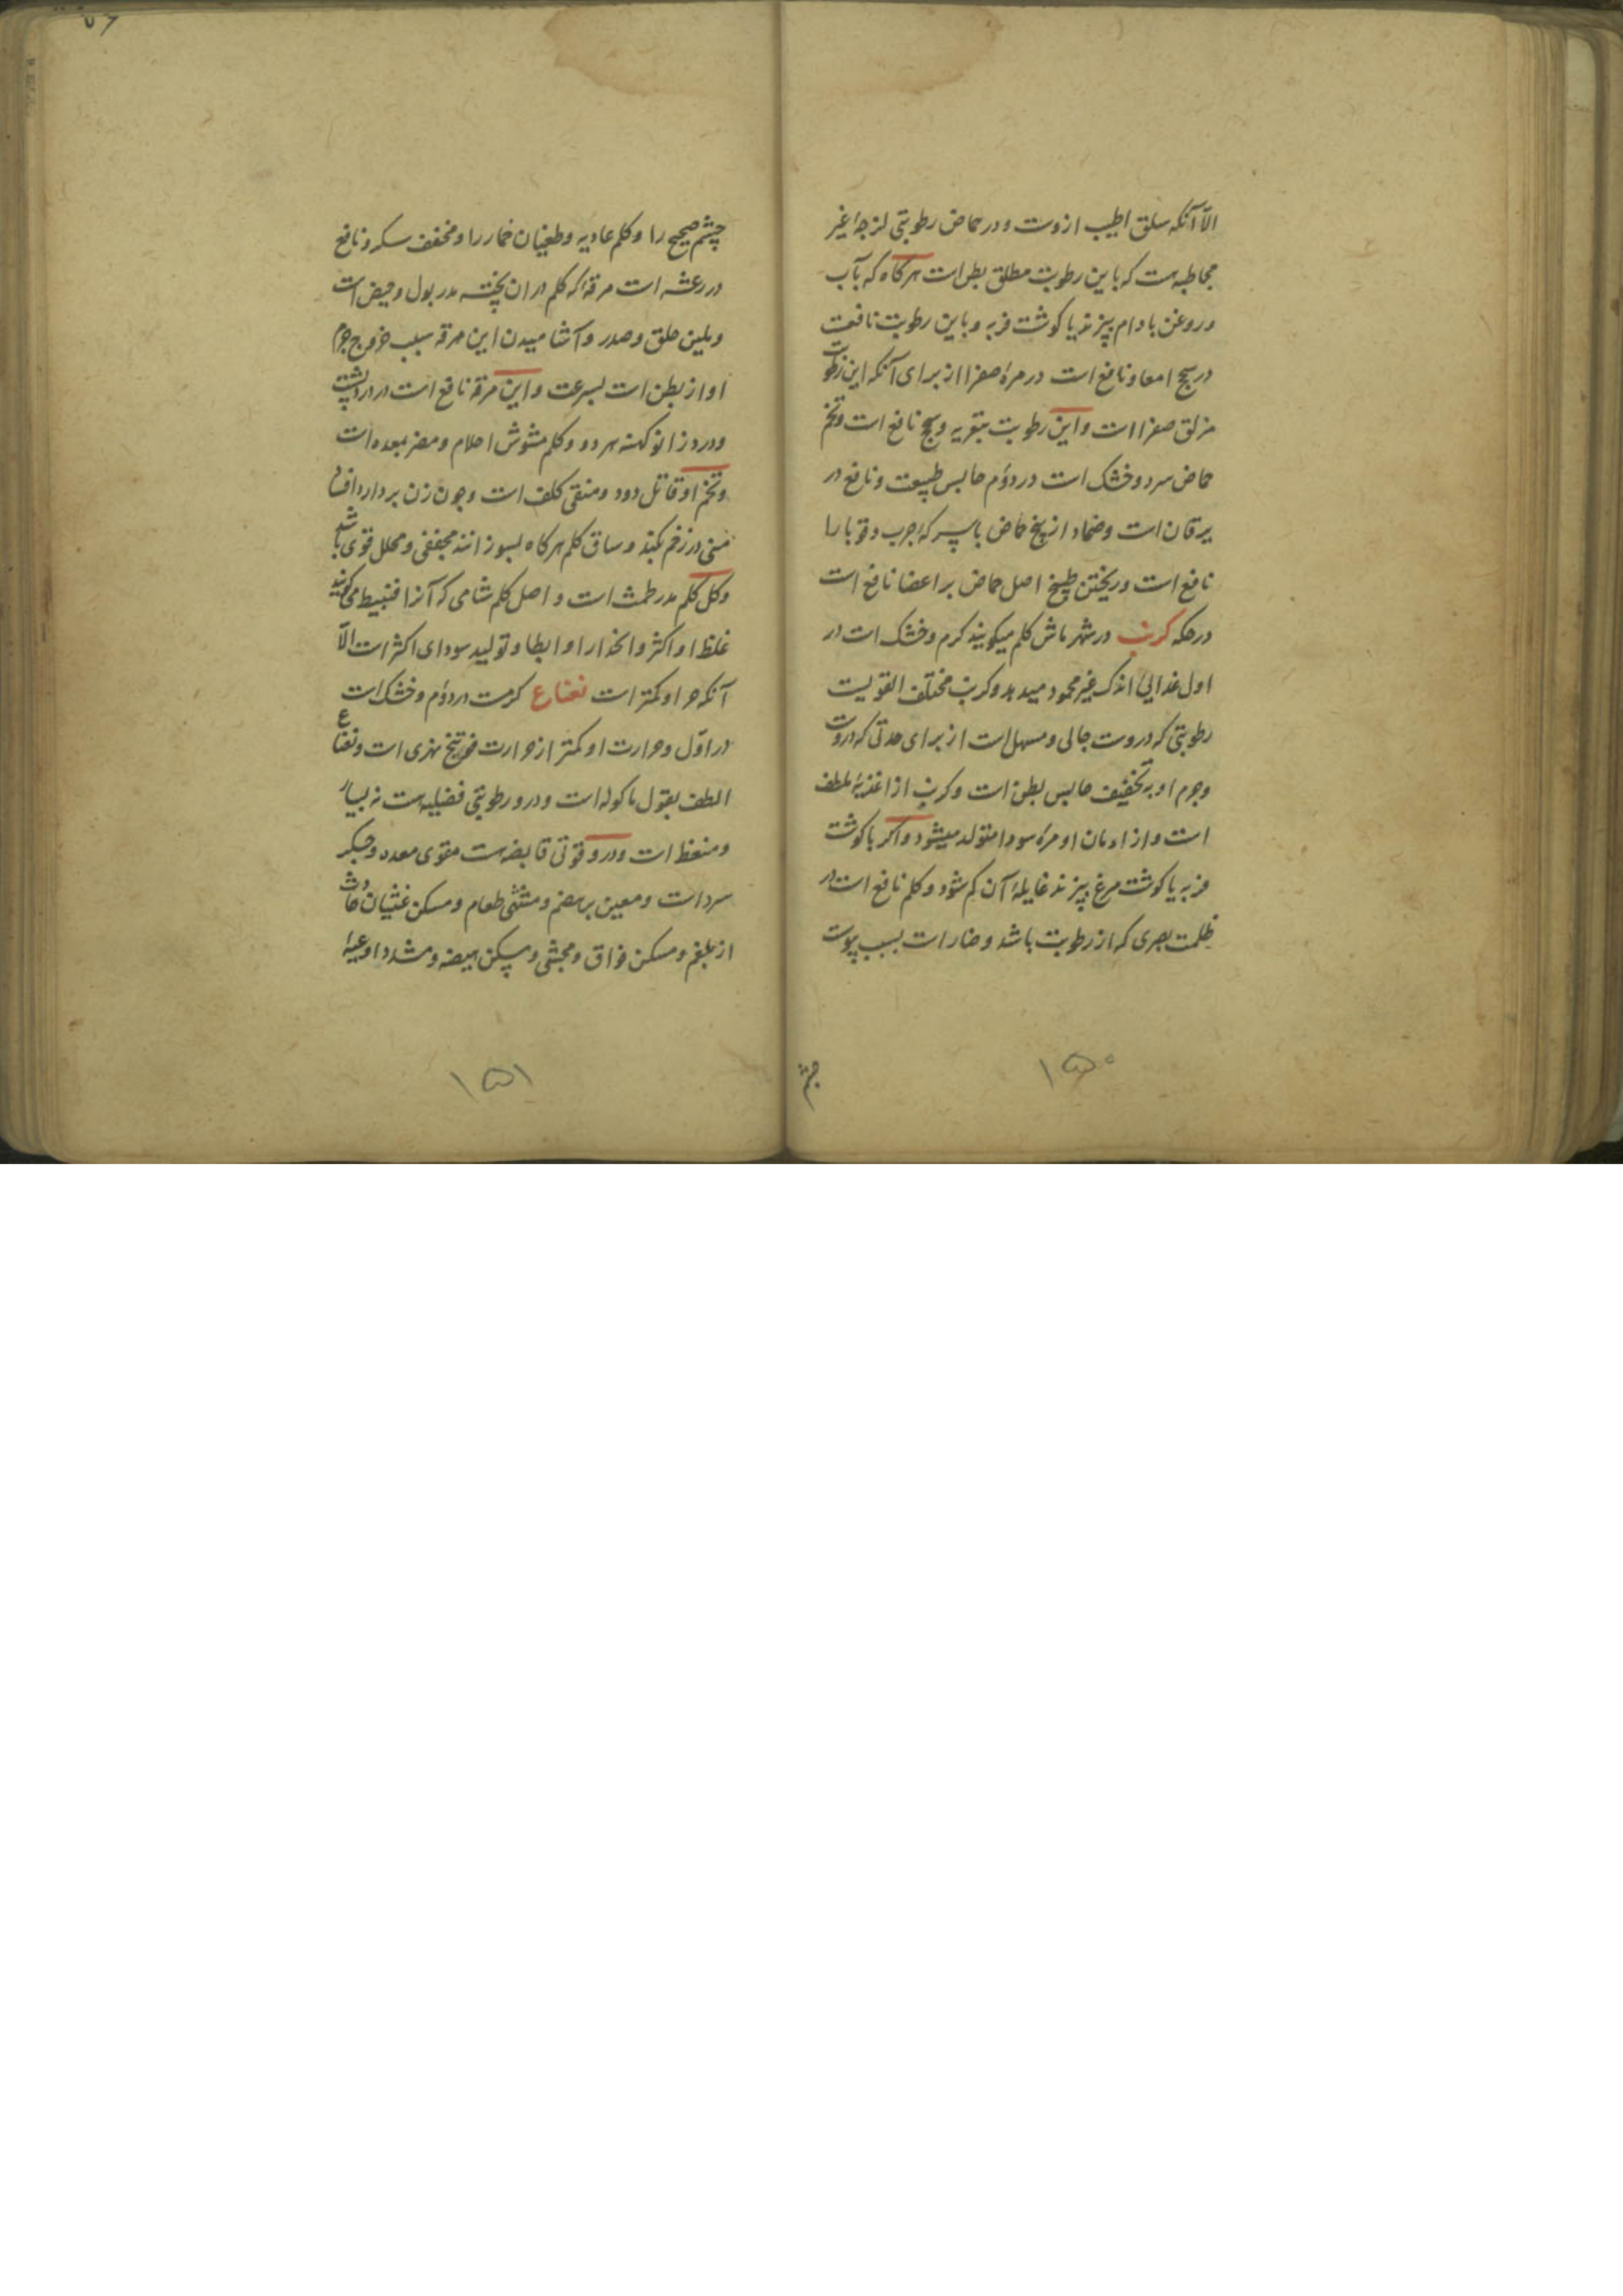 الّا آنکه سلق اطیب ازوست و در حماض رطوبتی لزجهٔ غیر
مخاطیه‌ست که باین رطوبت مطلق بطن است هرکاه که بآب
و روغن بادام پزند یا کوشت فربه و باین رطوبت نافعست
در سحج امعا و نافع است در مرهٔ صفرا از برای آنکه این رطوبت
مزلق صفرا است و این رطوبت بتغریه و سحج نافع است و تخم
حماض سرد و خشک است در دوّم حابس طبیعت و نافع در
یرقان است و ضماد از بیخ حماض با سرکه جرب و قوبا را
نافع است و ریختن طبیخ اصل حماض بر اعضا نافع است
در حکه کرنب در شهر ماش کلم میکویند کرم و خشک است در
اول غذائی اندک غیر محمود میدهد و کرنب مختلف القویست
رطوبتی که دروست جالی و مسهل است از برای حدتی که دروست
و جرم او بتخفیف حابس بطن است و کرنب از اغذیهٔ ملطف
است و از ادمان او مرهٔ سودا متولد میشود و اکر با کوشت
فربه یا کوشت مرغ بپزند غایلهٔ آن کم شود و کلم نافع است در
ظلمت بصری که از رطوبت باشد و ضار است بسبب یبوست
۱۵۰
چشم
چشم صحیح را و کلم عادیه و طغیان خمار را و مخفف سکر و نافع
در رعشه است مرقهٔ که کلم در ان پخته مدر بول و حیض است
و ملین حلق و صدر و آشامیدن این مرقه سبب خروج جرم
او از بطن است بسرعت و این مرقه نافع است در درد پشت
و درد زانو کهنه هر دو و کلم مشوش احلام و مضر بمعده است
و تخم او قاتل دود و منقی کلف است و چون زن بردارد افساد
منی در زخم بکند و ساق کلم هرکاه بسوزانند مجففی و محلل قوی باشد
و کل کلم مدر طمث است و اصل کلم شامی که آنرا قنبیط می کویند
غلظ او اکثر و انحدار او ابطا و تولید سودای اکثر است الّا
آنکه حر او کمتر است نعناع کرمست در دوّم و خشک است
در اوّل و حرارت او کمتر از حرارت فوتنج نهری است و نعناع
الطف بقول ماکوله است و درو رطوبتی فضلیه‌ست نه بسیار
و منعظ است و درو قوتی قابضه‌ست مقوی معده و جکر
سرد است و معین بر هضم و مشهی طعام و مسکن غثیان حادث
از بلغم و مسکن فواق و مجشی و مسکن هیضه و مشدد اوعیهٔ
۱۵۱